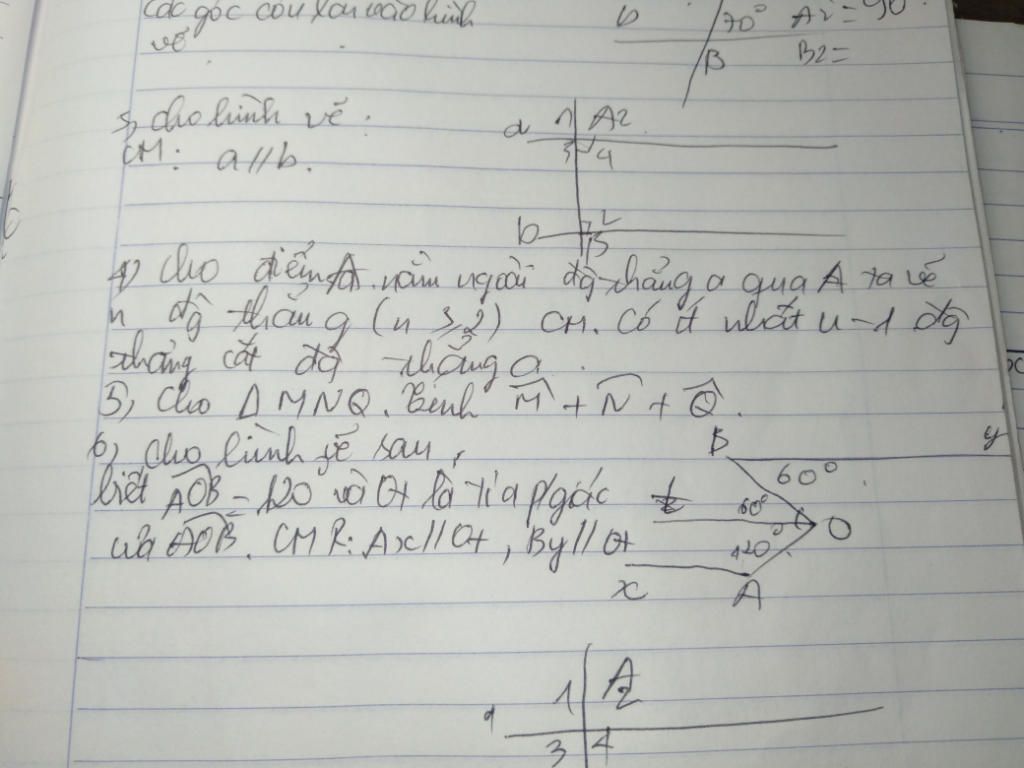 các góc còn lại vào hình
vẽ
b 70° A2 = 90
B B2 =
3, cho hình vẽ.
CM: a//b.
a 1 A2
3 4
b 2
B
4, Cho điểm A nằm ngoài đg thẳng a qua A ta vẽ
n đg thẳng (n ≥ 2) CM. Có ít nhất n-1 đg
thẳng cắt đg thẳng a.
5, Cho Δ MNQ. Tính M̂ + N̂ + Q̂.
6, cho hình vẽ sau,
biết AOB = 120 và Ot là tia p/giác
của AOB. CMR: Ax//Ot, By//Ot
B y
60°
t 60° O
120°
x A
1 A2
3 4